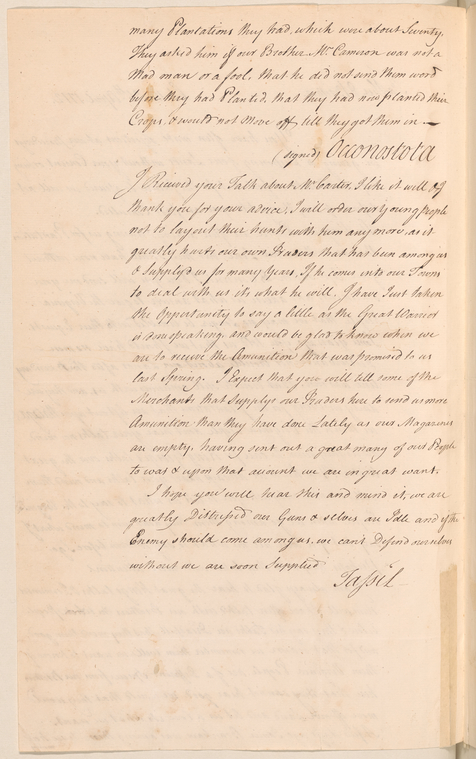 many Plantations they had, which were about Seventy.
They asked him if our Brother Mr. Cameron was not a
Mad man or a fool, that he did not send them word
before they had Planted, that they had now planted their
Crops, & would not Move off till they got them in —
(signed) Occonostota
I Received your Talk about Mr. Carter, I like it well &
thank you for your advice, I will order our Young people
not to lay out their hunts with him any more, as it
greatly hurts our own Traders that has been among us
& Supply'd us for many Years, If he comes into our Towns
to deal with us its what he will. I have Just taken
the Opportunity to say a little, as the Great Warrior
is done speaking, and would be glad to know when we
are to receive the Amunition that was promised to us
last Spring. I Expect that you will tell some of the
Merchants that Supplys our Traders here to send us more
Amunition than they have done Lately as our Magazines
are empty, having sent out a great many of our People
to war & upon that account we are in great want.
I hope you will hear this and mind it, we are
greatly Distressed our Guns & selves are Idle and if the
Enemy should come among us, we can't Defend ourselves
without we are soon Supplied
Tassil